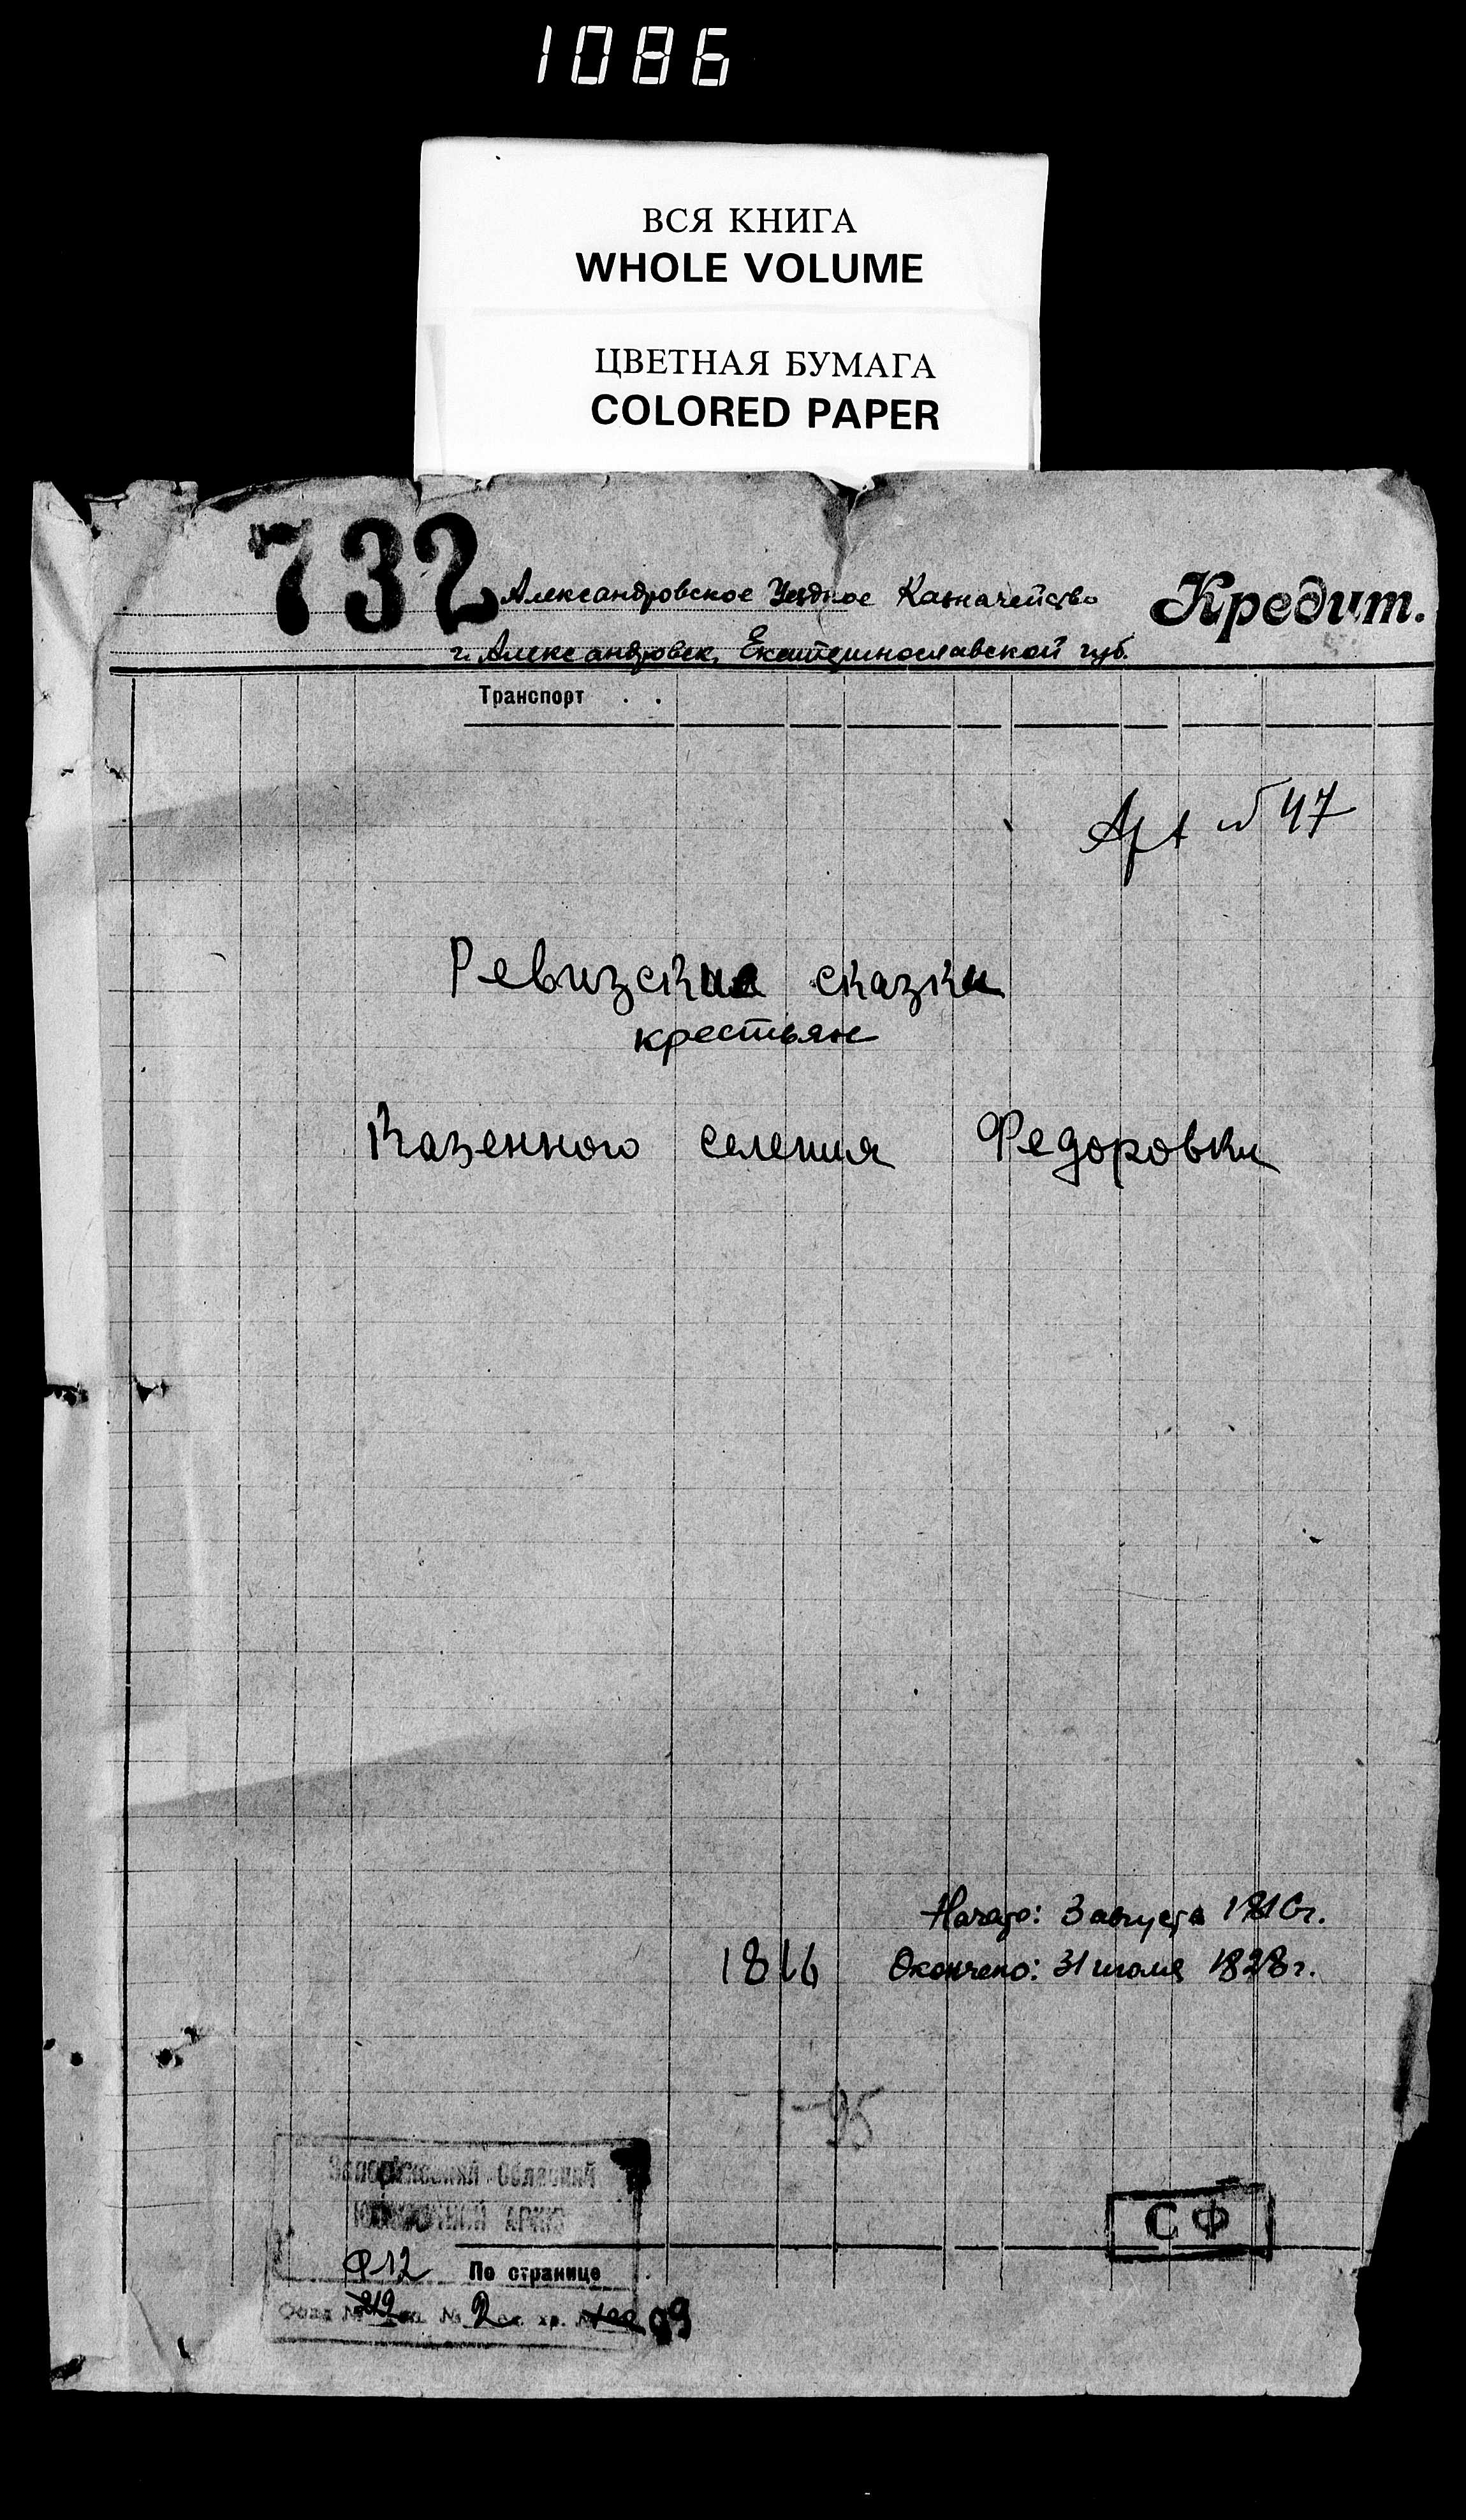 1086
ВСЯ КНИГА
WHOLE VOLUME
ЦВЕТНАЯ БУМАГА
COLORED PAPER
732 Александровское Уездное Казначейство Кредит.
г. Александровск, Екатеринославской губ.
Транспорт . .
Арх № 47
Ревизские сказки
крестьян
Казенного селения Федоровки
Начато: 3 августа
1816 Окончено: 31 июля 1828 г.
95
Облас
С Ф
Ф12 По странице
219 № 2 хр. 99